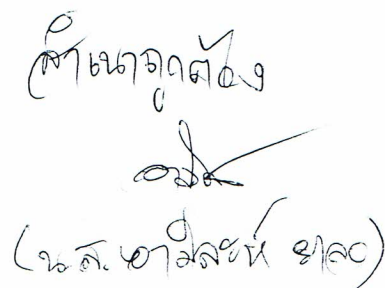 สำเนาถูกต้อง
(น.ส. อามีละห์ ยาลอ)